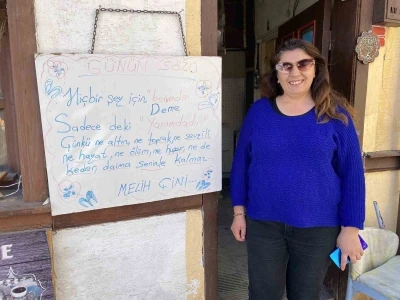 GÜNÜN SÖZÜ
Hiçbir şey için "benimdir"
Deme
Sadece deki "Yanımdadır"
Çünkü ne altın, ne toprak, ne sevgili
ne hayat, ne ölüm, ne huzur, ne de
keder daima seninle kalmaz
MELİH ÇİNİ...